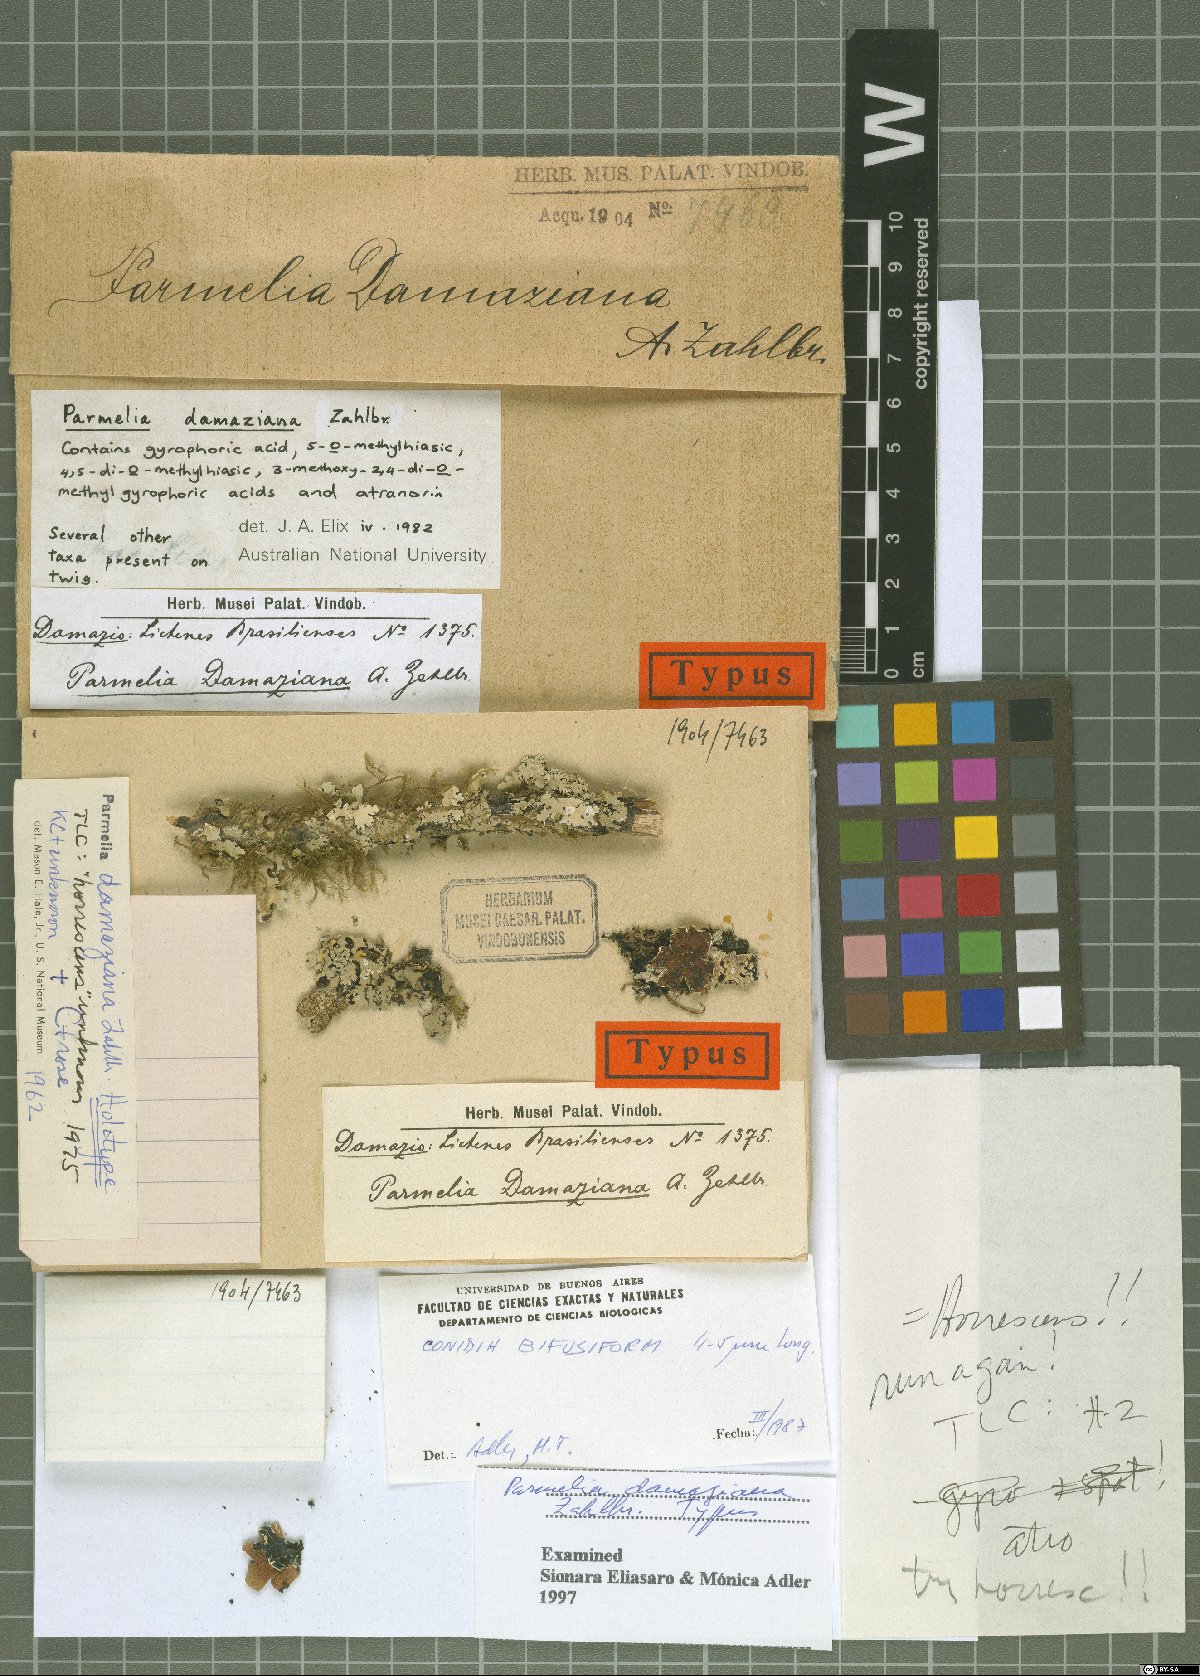 W
10
9
8
7
6
5
4
3
2
1
0
cm
copyright reserved
HERB. MUS. PALAT. VINDOB.
Acqu. 1904 No. 7463
Parmelia Damaziana
A. Zahlbr.
Parmelia damaziana Zahlbr.
Contains gyrophoric acid, 5-O-methylhiasic,
4,5-di-O-methylhiasic, 3-methoxy-2,4-di-O-
methylgyrophoric acids and atranorin
Several other
taxa present on
twig.
det. J. A. Elix iv. 1982
Australian National University
Herb. Musei Palat. Vindob.
Damazio: Lichenes Brasilienses No 1375.
Parmelia Damaziana A. Zahlbr.
Typus
1904/7463
Parmelia damaziana Zahlbr. Holotype
TLC: "horrescens" unknowns 1975
KC+ unknown + C+ rose
det. Mason E. Hale, Jr., U. S. National Museum 1962
HERBARIUM
MUSEI CAESAR. PALAT.
VINDOBONENSIS
Typus
Herb. Musei Palat. Vindob.
Damazio: Lichenes Brasilienses No 1375.
Parmelia Damaziana A. Zahlbr.
1904/7463
UNIVERSIDAD DE BUENOS AIRES
FACULTAD DE CIENCIAS EXACTAS Y NATURALES
DEPARTAMENTO DE CIENCIAS BIOLOGICAS
CONIDIA BIFUSIFORM 4-5 µm long.
Fecha: III/1987
Det.: Adler, M.T.
Parmelia damaziana
Zahlbr. Typus
Examined
Sionara Eliasaro & Mónica Adler
1997
= Horrescens!!
run again!
TLC: A-2
gyro ± spot!
atro
try horresc!!
CC BY-SA